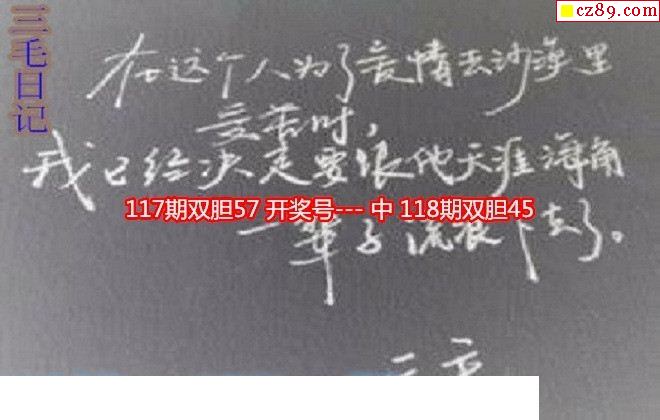 cz89.com
三毛日记
在这个人为了爱情去沙漠里
受苦时,
我已经决定要跟他天涯海角
117期双胆57 开奖号--- 中 118期双胆45
一辈子流浪下去了。
三毛